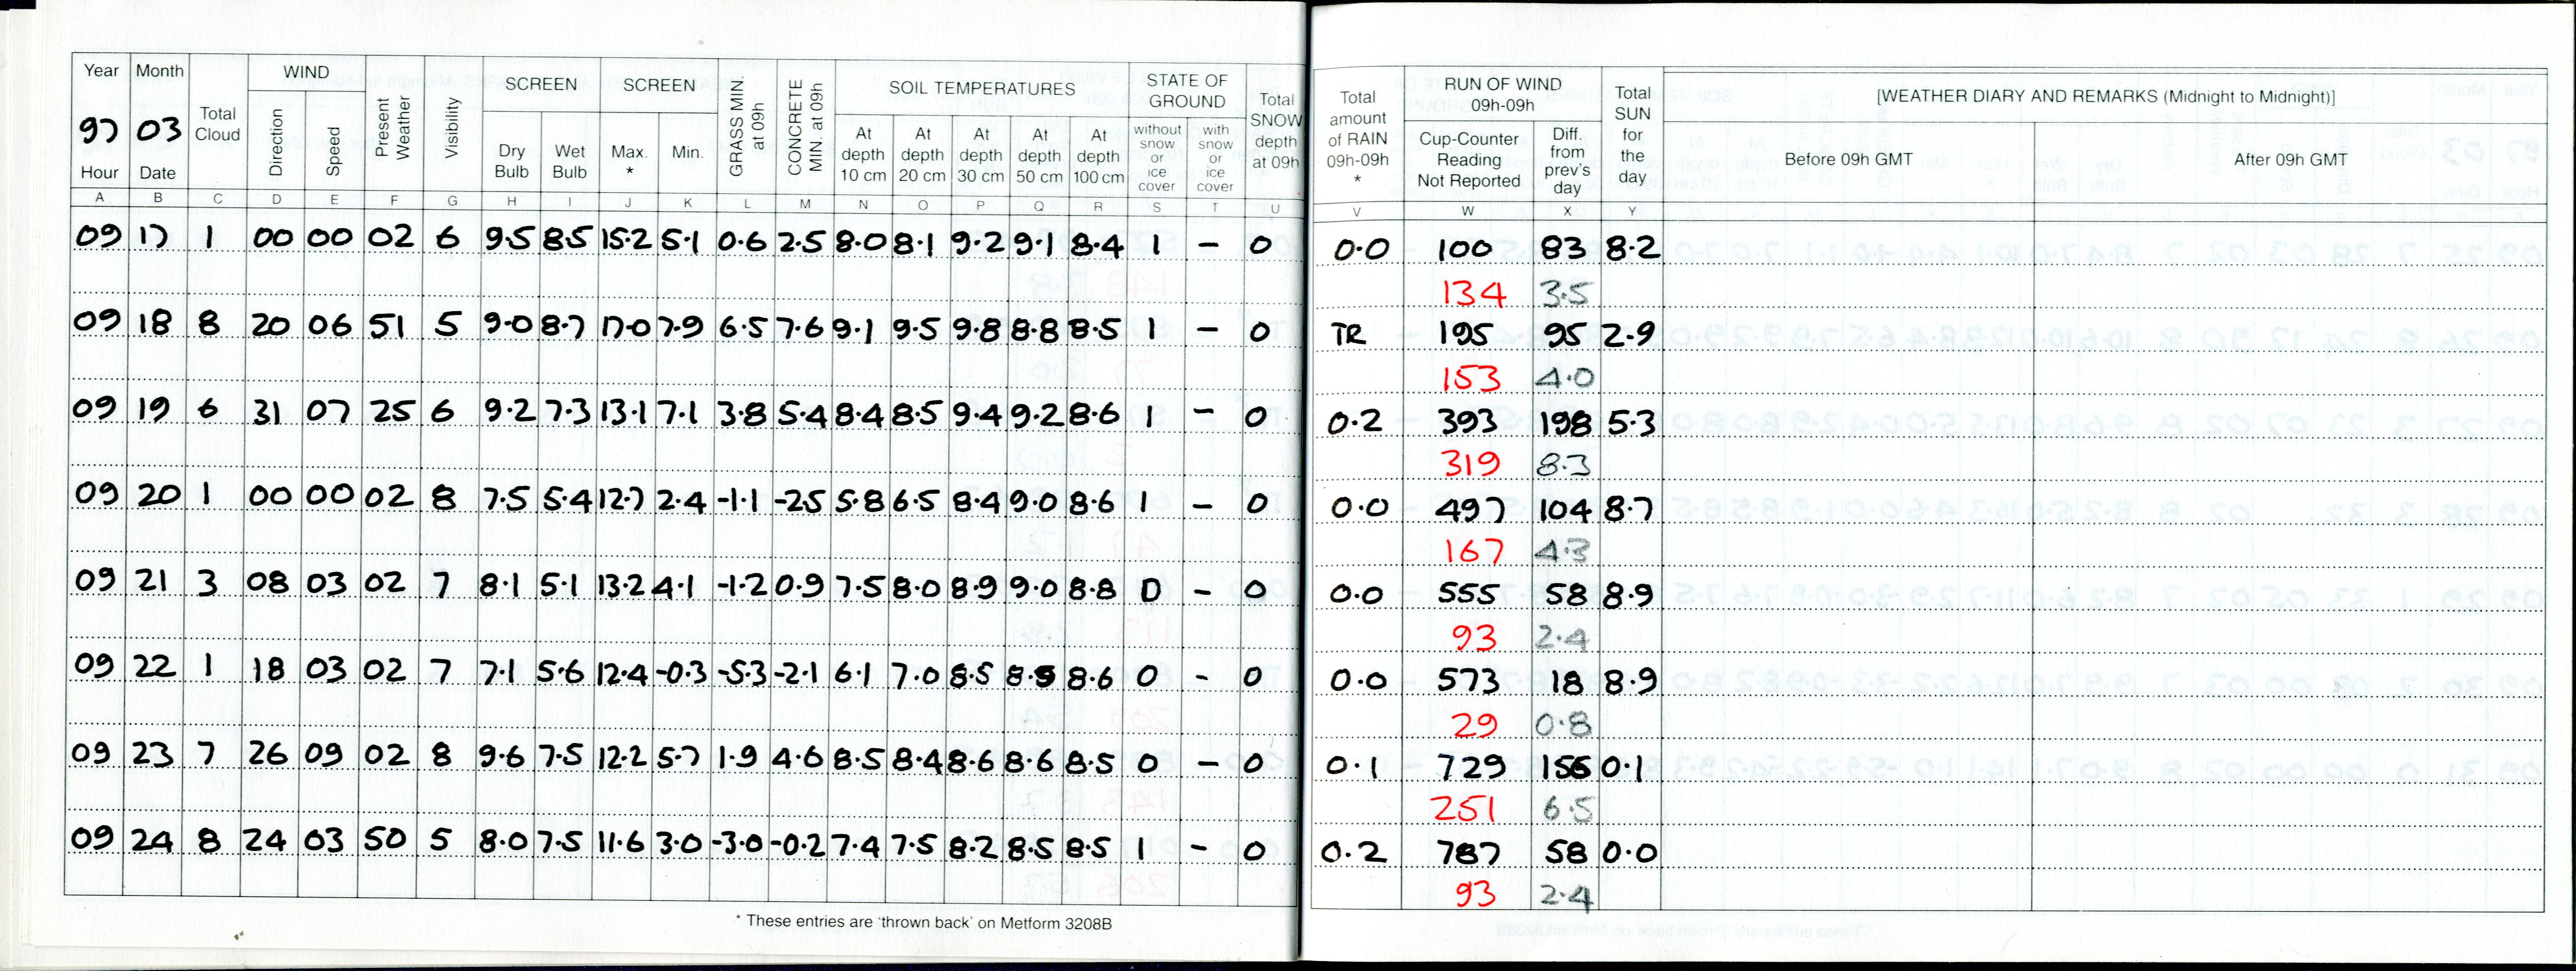 Year Month Total Cloud WIND Present Weather Visibility SCREEN SCREEN GRASS MIN. at 09h CONCRETE MIN. at 09h SOIL TEMPERATURES STATE OF GROUND Total SNOW depth at 09h Total amount of RAIN 09h-09h * RUN OF WIND 09h-09h Total SUN for the day [WEATHER DIARY AND REMARKS (Midnight to Midnight)]
97 03 Direction Speed Dry Bulb Wet Bulb Max. * Min. At depth 10 cm At depth 20 cm At depth 30 cm At depth 50 cm At depth 100 cm without snow or ice cover with snow or ice cover Cup-Counter Reading Not Reported Diff. from prev's day Before 09h GMT After 09h GMT
Hour Date
A B C D E F G H I J K L M N O P Q R S T U V W X Y
09 17 1 00 00 02 6 9.5 8.5 15.2 5.1 0.6 2.5 8.0 8.1 9.2 9.1 8.4 1 - 0 0.0 100 83 8.2
134 3.5
09 18 8 20 06 51 5 9.0 8.7 17.0 7.9 6.5 7.6 9.1 9.5 9.8 8.8 8.5 1 - 0 TR 195 95 2.9
153 4.0
09 19 6 31 07 25 6 9.2 7.3 13.1 7.1 3.8 5.4 8.4 8.5 9.4 9.2 8.6 1 - 0 0.2 393 198 5.3
319 8.3
09 20 1 00 00 02 8 7.5 5.4 12.7 2.4 -1.1 -2.5 5.8 6.5 8.4 9.0 8.6 1 - 0 0.0 497 104 8.7
167 4.3
09 21 3 08 03 02 7 8.1 5.1 13.2 4.1 -1.2 0.9 7.5 8.0 8.9 9.0 8.8 0 - 0 0.0 555 58 8.9
93 2.4
09 22 1 18 03 02 7 7.1 5.6 12.4 -0.3 -5.3 -2.1 6.1 7.0 8.5 8.9 8.6 0 - 0 0.0 573 18 8.9
29 0.8
09 23 7 26 09 02 8 9.6 7.5 12.2 5.7 1.9 4.6 8.5 8.4 8.6 8.6 8.5 0 - 0 0.1 729 156 0.1
251 6.5
09 24 8 24 03 50 5 8.0 7.5 11.6 3.0 -3.0 -0.2 7.4 7.5 8.2 8.5 8.5 1 - 0 0.2 787 58 0.0
93 2.4
* These entries are 'thrown back' on Metform 3208B